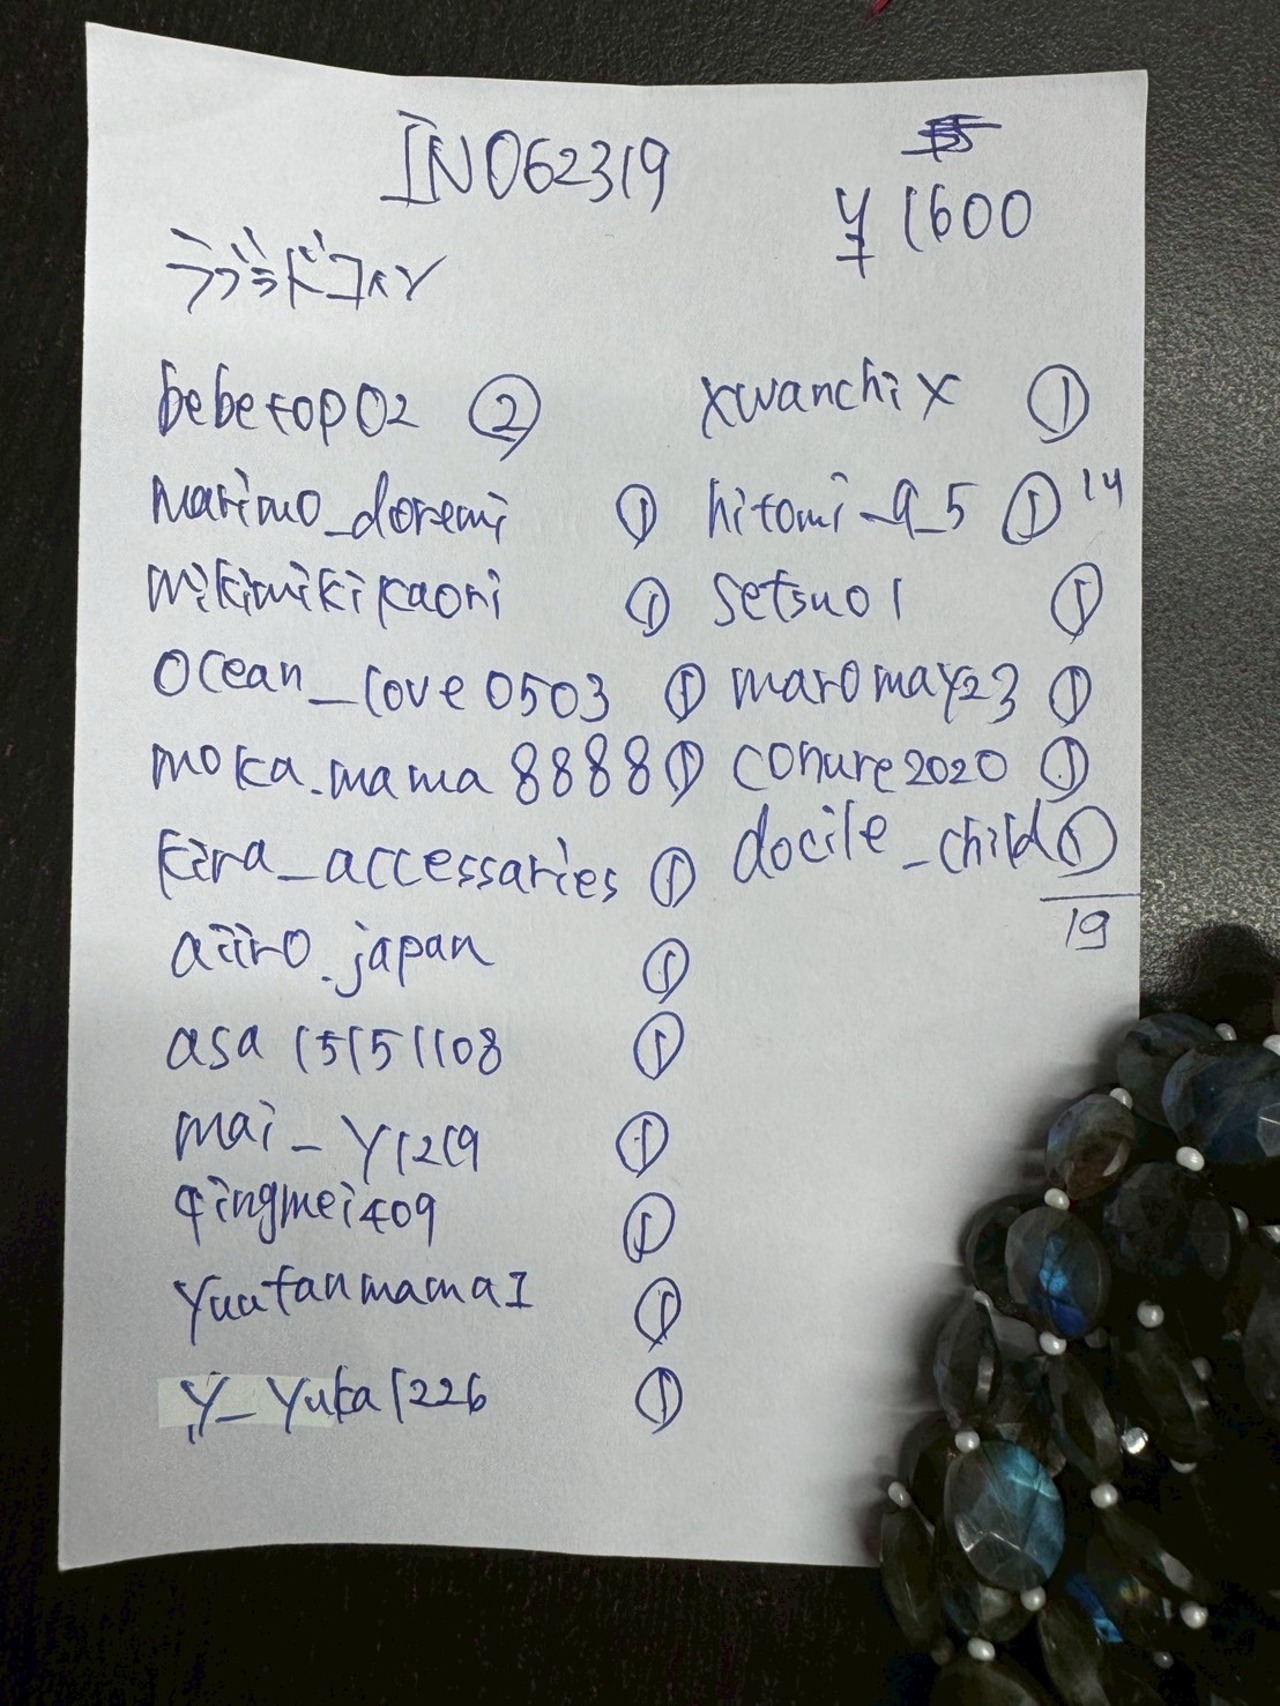 IN062319
¥1600
ラブラドコイン
bebetop02 ②
marimo_doremi ①
mikimikikaori ①
ocean_love0503 ①
moka.mama8888 ①
kira_accessaries ①
aiiro.japan ①
asa15151108 ①
mai_y1219 ①
qingmei409 ①
yuutanmama1 ①
y_yuka1226 ①
xwanchix ①
hitomi_9_5 ① 14
setsuo1 ①
maromay23 ①
conure2020 ①
docile_child ①
19